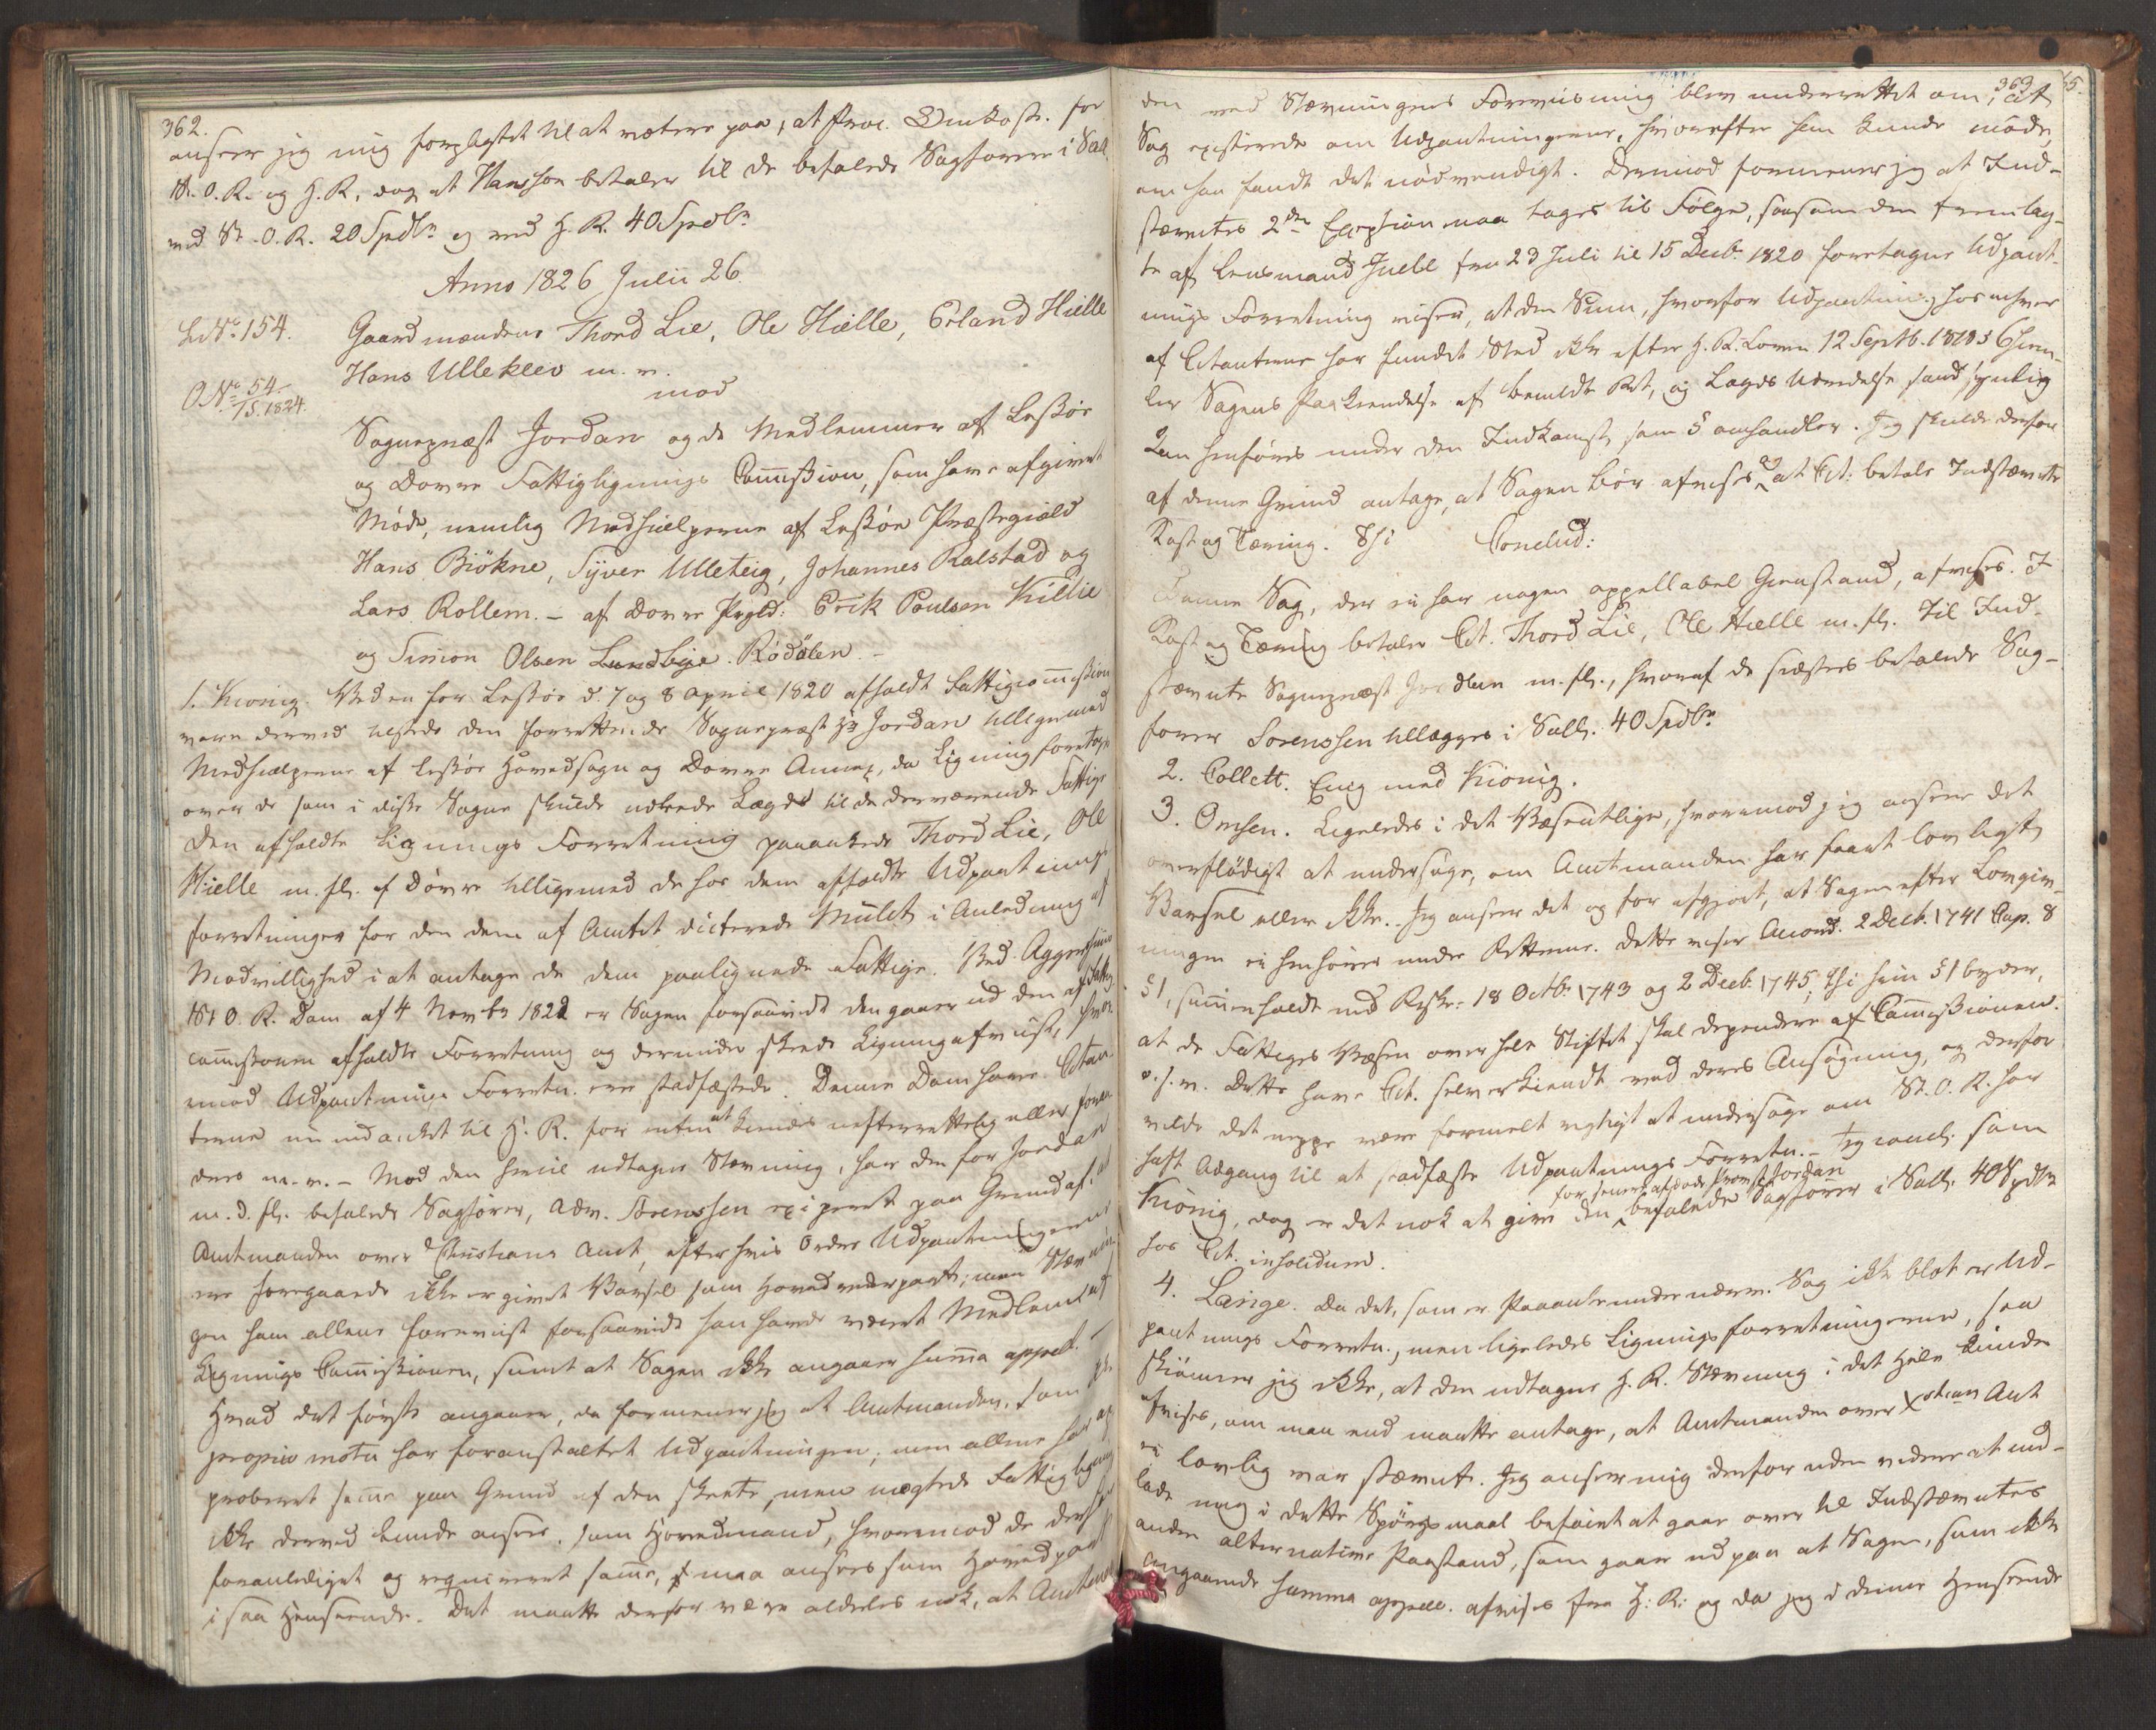 362.
anseer jeg mig forpligtet til at votere paa, at Proc. Omkost. for
St. O. R. og H. R. dog at Hansson betaler til de befalede Sagførere i Sall.
ved St. O. R. 20 Spdlr og ved H. R. 40 Spdlr
Anno 1826 Julii 26.
L. No. 154.
Gaardmændene Thord Lie, Ole Hielle, Erland Hielle
Hans Ullekleo m. v.
O No. 54/15. 1824.
mod
Sognepræst Jordan og de Medlemmer af Lessøe
og Dovre Fattiglignings Commission, som have afgivet
Møde, nemlig Medhielperne af Lessøe Præstegield
Hans Biökne, Syver Ulleteig, Johannes Ralstad og
Lars Rollem. – af Dovre Prgld: Erik Poulsen Killie
og Simon Olsen Lundbye Rödölen. –
1. Kionig. Ved en for Lessøe d. 7 og 8 April 1820 afholdt Fattigcommission
vare derved tilstede den forrettende Sognepræst Hr Jordan tilligemed
Medhielperne af Lessøe Hovedsogn og Dovre Annex, da Ligning foretoges
over de som i disse Sogne skulde udrede Lægd til de derværende Fattige
Den afholdte Lignings Forretning paaankede Thord Lie, Ole
Hielle m. fl. af Dovre tilligemed de hos dem afholdte Udpantnings
forretninger for den dem af Amtet dicterede Mulct i Anledning af
Modvillighed i at antage de dem paalignede Fattige. Ved Aggershuus
St. O. R. Dom af 4 Novbr 1822 er Sagen forsaavidt den gaaer ud den af Fattig
commissionen afholdte Forretning og derunder skeede Ligning afviist, hvor
imod Udpantnings Forretn. ere stadfæstede. Denne Dom have Citan
terne nu indanket til H. R. for enten at kiendes uefterrettelig eller foran
dres m. v. – Mod den hertil udtagne Stevning, har den for Jordan
m. d. fl. befalede Sagfører, Adv. Sørenssen exiperet paa Grund af, at
Amtmanden over Christians Amt, efter hvis Ordre Udpantningerne
ere foregaaede ikke er givet Varsel som Hovedvederpart; men Stevnin
gen ham allene foreviist forsaavidt han havde været Medlem af
Lignings Commissionen, samt at Sagen ikke angaaer summa appel.
Hvad det første angaaer, da formener jeg at Amtmanden, som ikke
proprio motu har foranstaltet Udpantningen, men allene har ap
proberet samme paa Grund af den skeete, men nægtede Fattigligning
ikke derved kunde ansees, som Hovedmand, hvorimod de der har
foranlediget og requireret samme, maa ansees som Hovedpart
i saa Henseende. Det maatte derfor være aldeles nok, at Amtman
363
den ved Stævningens Foreviisning blev underrettet om, at
Sag existerede om Udpantningerne, hvorefter han kunde møde,
om han fandt det nødvendigt. Derimod formener jeg at Ind-
stævntes 2den Exception maa tages til Følge, saasom den fremlag-
te af Lensmand Juell fra 23 Juli til 15 Decbr 1820 foretagne Udpant-
nings Forretning viser, at den Sum, hvorfor Udpantning hos enhver
af Citanterne har fundet Sted ikke efter H. R. Loven 12 Septb. 1818 § 6 hen-
lig Sagens Paakiendelse af bemeldte Ret, og Lægds Udredelse sandsynlig
kan henføres under den Indkomst, som § omhandler. Jeg skulde derfor
af denne Grund antage, at Sagen bør afvises og at Cit: betale Indstævnte
Kost og Tæring. Thi Conclud:
Denne Sag, der ei har nogen appellabel Gienstand, afvises. I
Kost og Tæring betaler Cit. Thord Lie, Ole Hielle m. fl. til Ind-
stævnte Sognepræst Jordan m. fl., hvoraf de sidstes befalede Sag-
fører Sorenssen tillægges i Sall: 40 Spdlr
2. Collett. Enig med Kionig.
3. Omsen. Ligeledes i det Væsentlige, hvorimod jeg anseer det
overflödigt at undersøge, om Amtmanden har faaet lovligt
Varsel eller ikke. Jeg anseer det og for afgjort, at Sagen efter Lovgiv-
ningen ei henhører under Retterne. Dette viser Anord. 2 Decb. 1741 Cap. 8
§ 1, sammenholdt med Reskr: 18 Octbr 1743 og 2 Decb. 1745, thi hiin § 1 byder,
at de Fattiges Væsen over hele Stiftet skal dependere af Commissionen.
o. s. v. Dette have Cit. selv erkiendt ved deres Ansøgning, og derfor
vilde det neppe være formelt rigtigt at undersøge om St. O. R. har
haft Adgang til at stadfæste Udpantnings Forretn. – Jeg concl. som
Kionig, dog er det nok at give den for senere afdøde Provst Jordan befalede Sagfører i Sall: 40 Spdlr
hos Cit. in solidum.
4. Lange. Da det, som er Paaanke under nærv. Sag ikke blot er Ud-
pantnings Forretn., men ligeledes Ligningsforretningerne, saa
skiønner jeg ikke, at den udtagne H. R. Stævning i det Hele kunde
afvises, om man end maatte antage, at Amtmanden over Xstians Amt
ei lovlig var stævnt. Jeg anseer mig derfor uden videre at ind-
lade mig i dette Spørgsmaal beføiet at gaae over til Indstævntes
anden alternative Paastand, som gaaer ud paa at Sagen, som ikke
angaaende summa appell. afvises fra H: R: og da jeg i denne Henseende